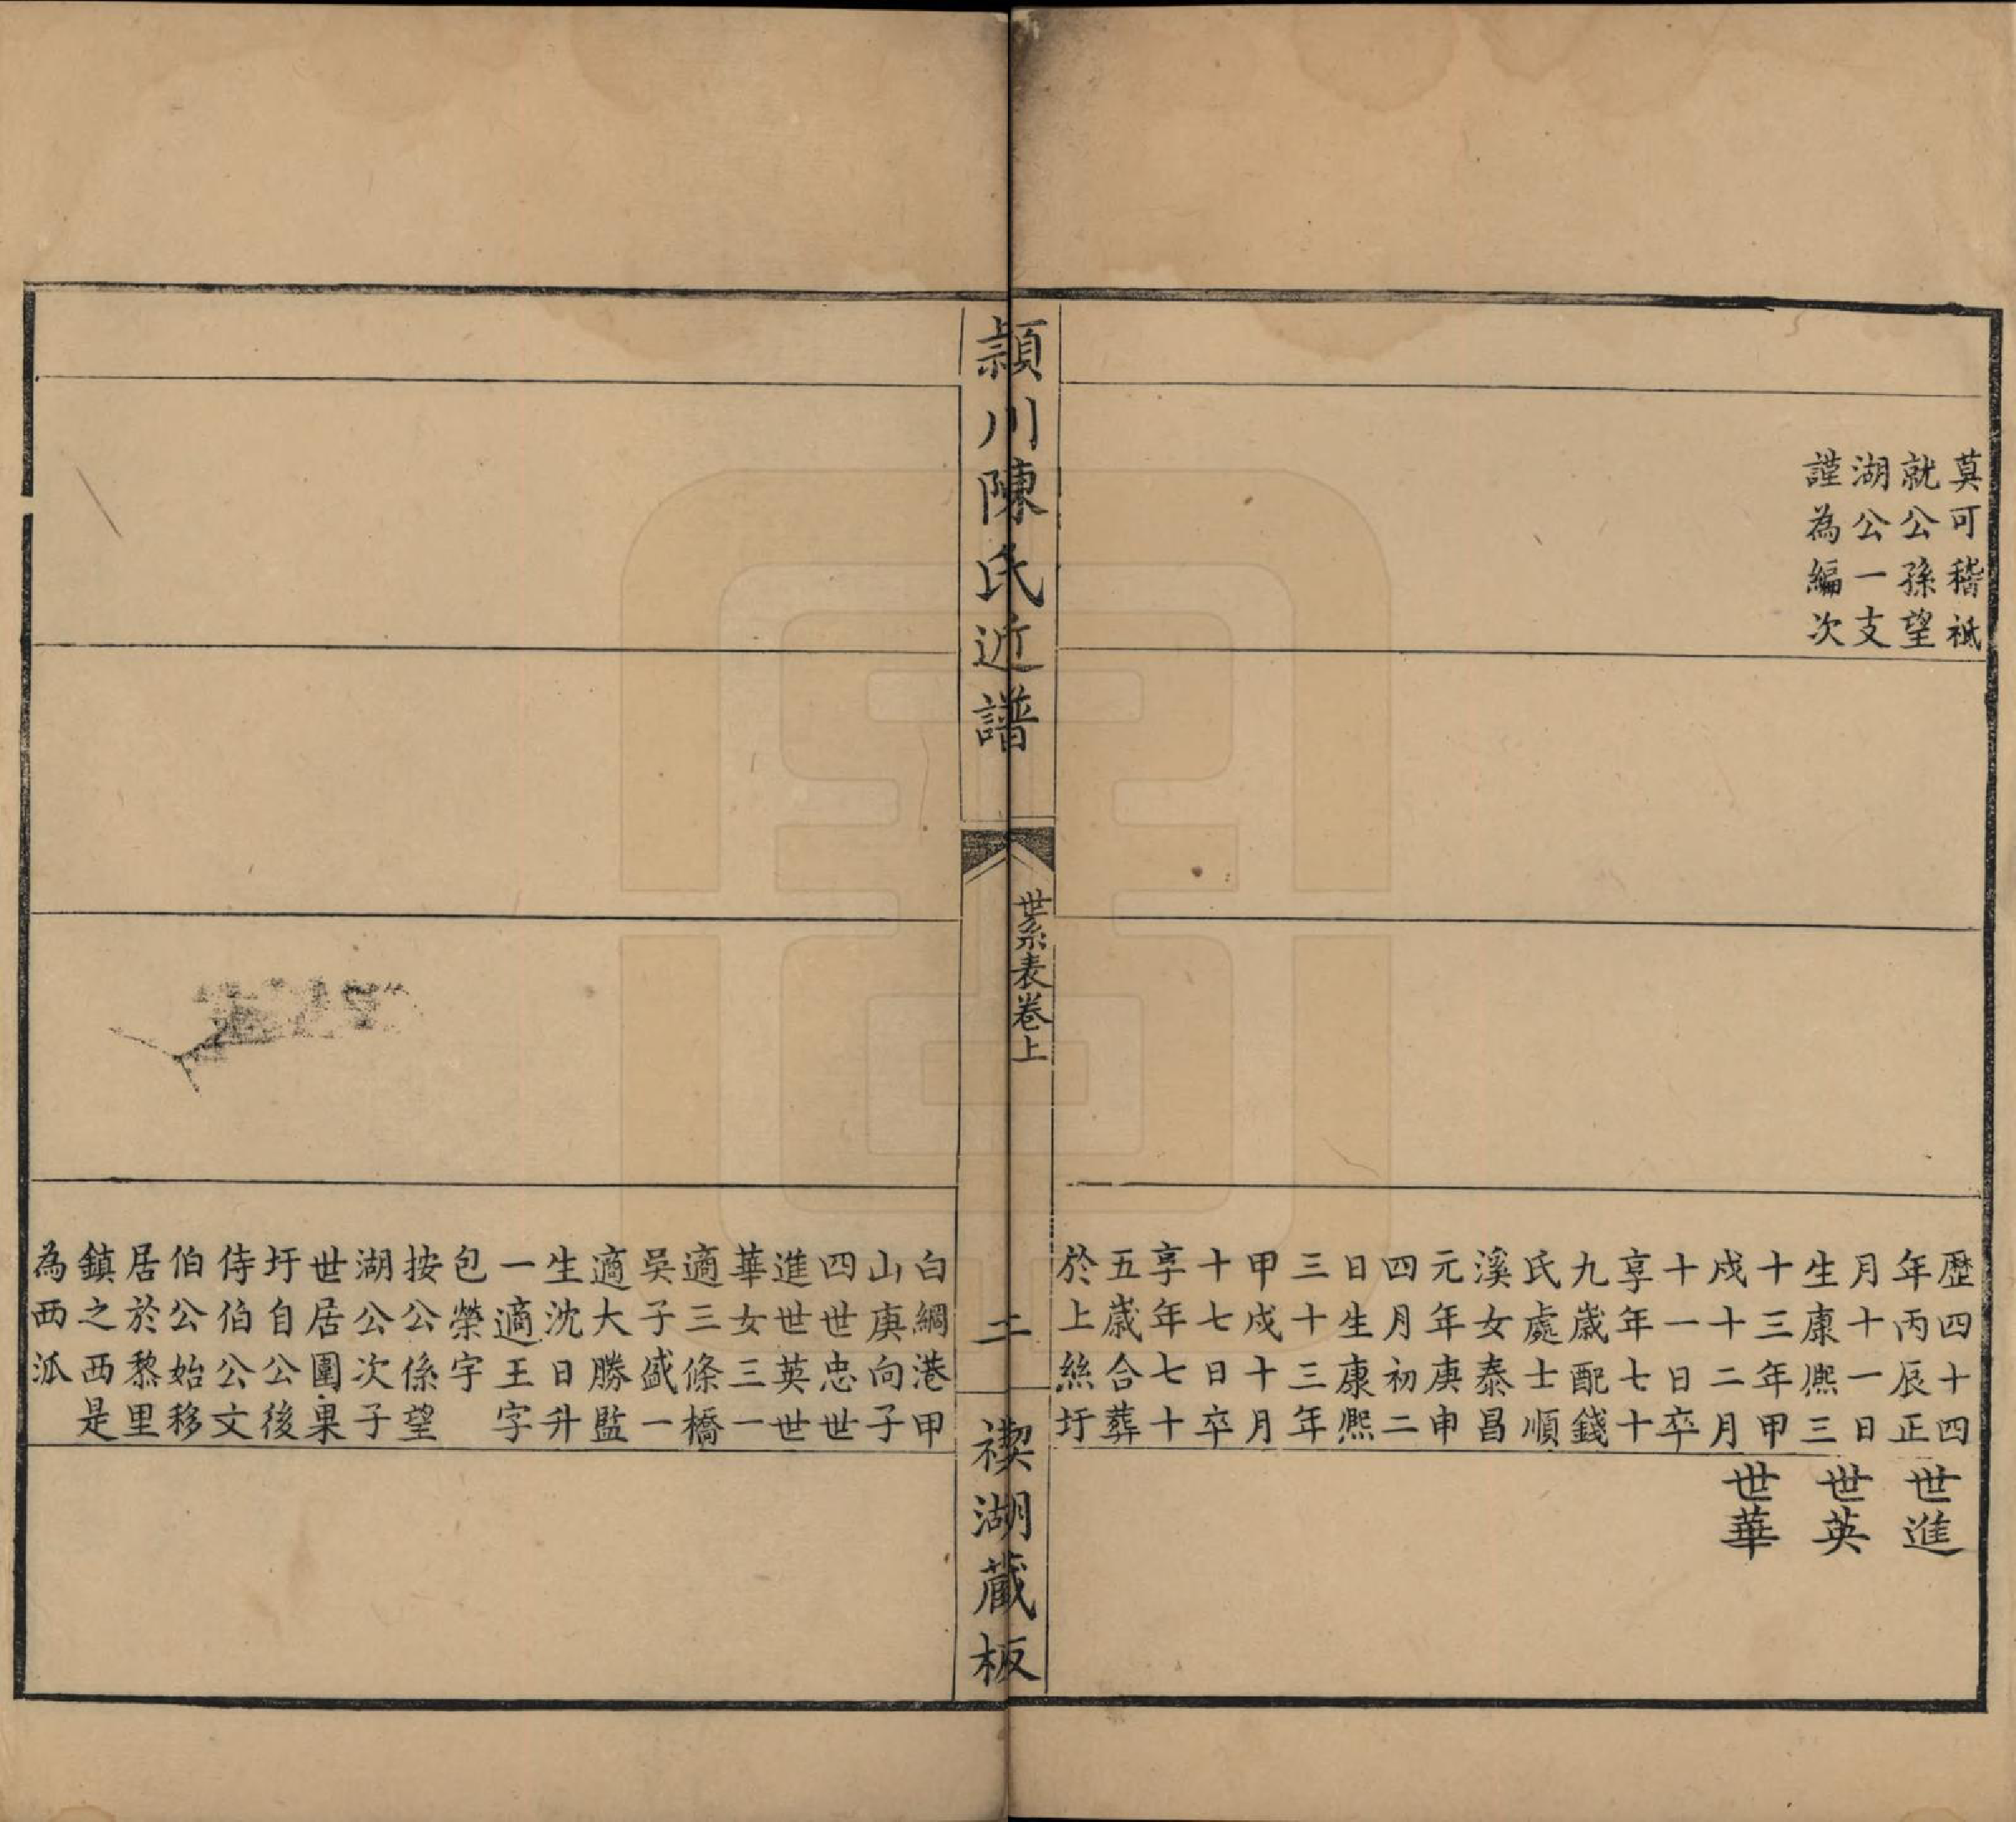 莫可稽祗
就公孫望
湖公一支
謹為編次
歴四十四
年丙辰正
月十一日
生康熙三
十三年甲
戍十二月
十一日卒
享年七十
九歲配錢
氏處士順
溪女泰昌
元年庚申
四月初二
日生康熙
三十三年
甲戍十月
十七日卒
享年七十
五歲合葬
於上絲圩
世進
世英
世華
潁川陳氏近譜
世系表卷上
二
禊湖藏板
白綢港甲
山庚向子
四世忠世
進世英世
華女三一
適三條橋
吳子盛一
適大勝監
生沈日升
一適王字
包榮字
按公係望
湖公次子
世居圍果
圩自公後
侍伯公文
伯公始移
居於黎里
鎮之西是
為西泒